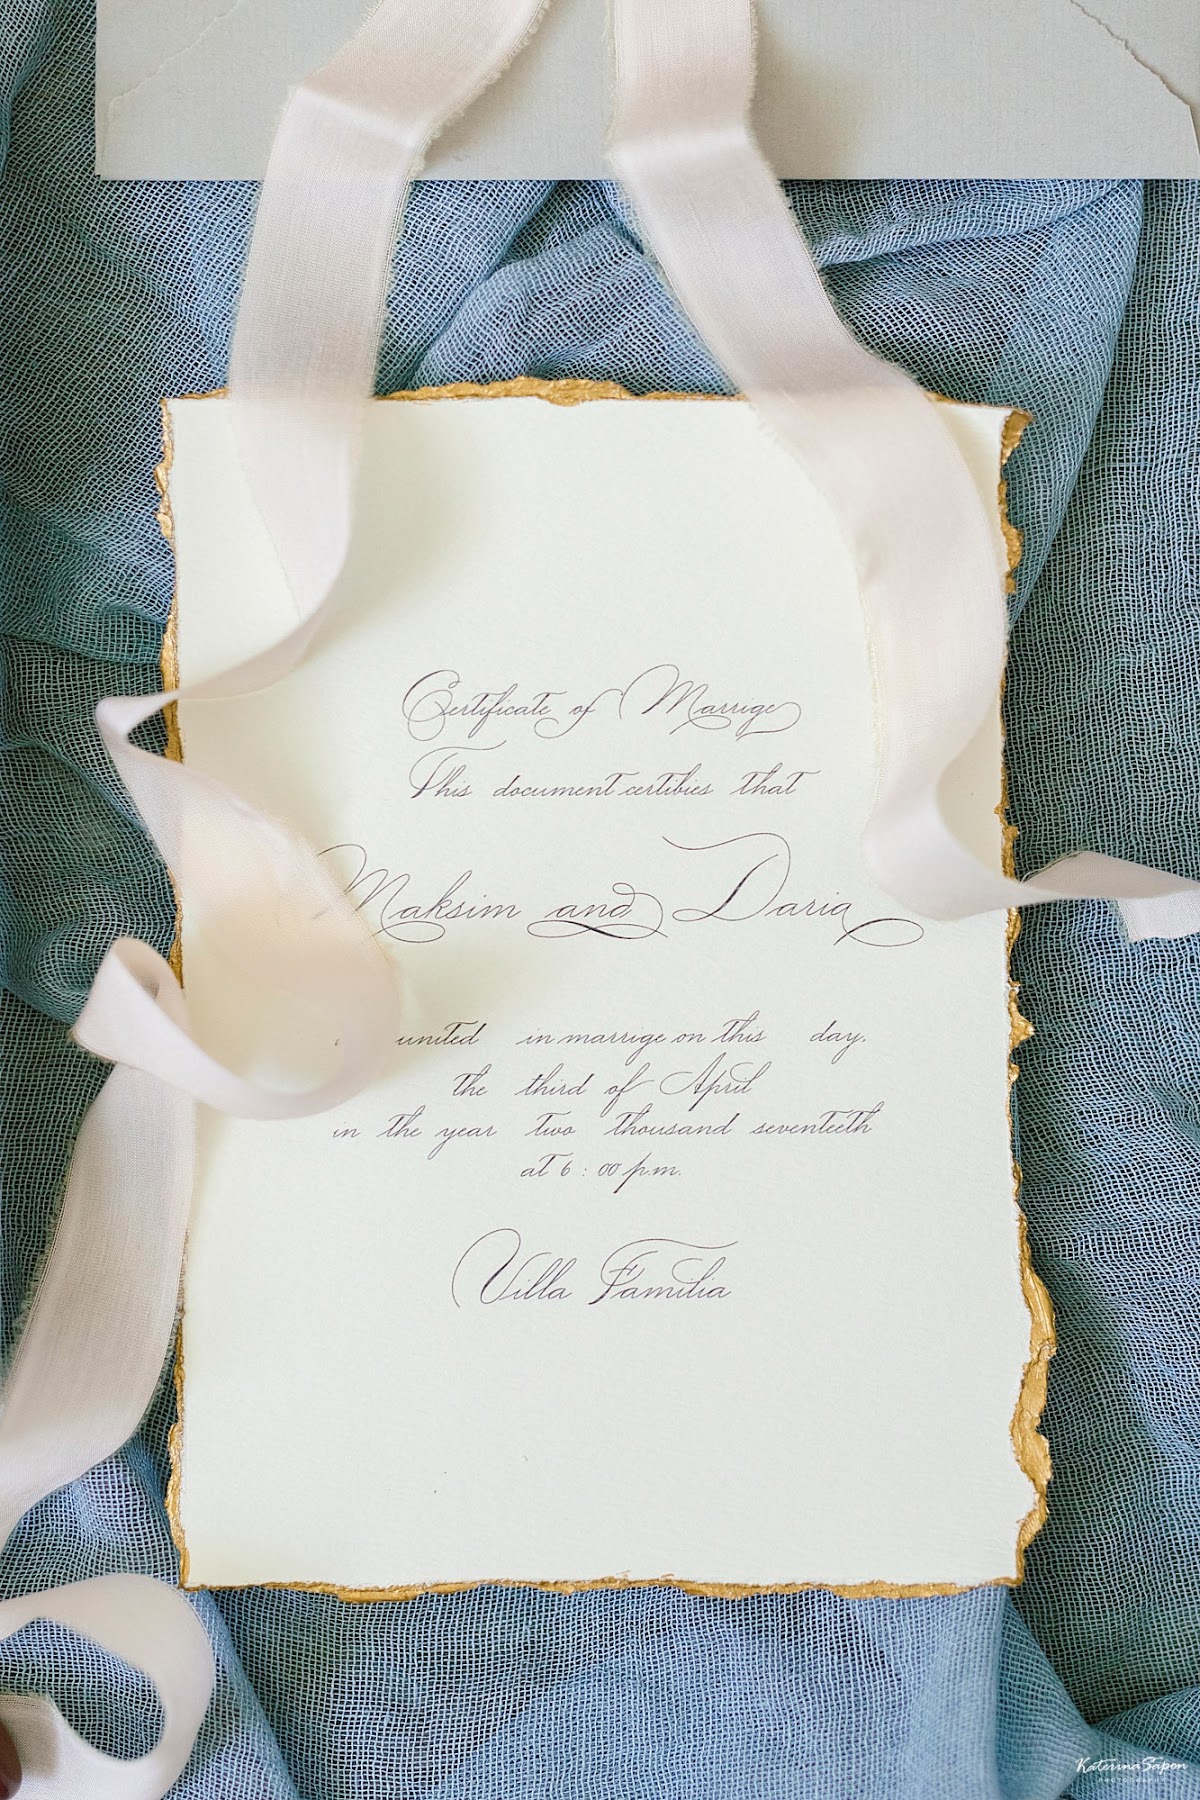 Certificate of Marrige
This document certibies that
Maksim and Daria
united in marrige on this day,
the third of April
in the year two thousand seventeeth
at 6 : 00 p.m.
Villa Familia
Katerina Sapon
PHOTOGRAPHY